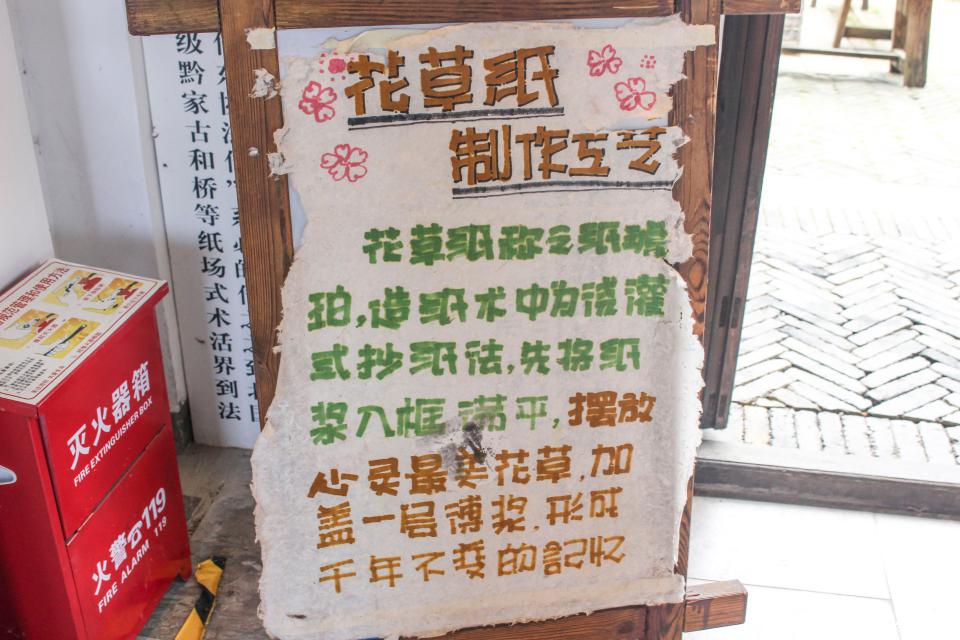 花草纸
制作工艺
花草纸称之纸琥
珀,造纸术中为浇灌
式抄纸法,先将纸
浆入框满平,摆放
心灵最美花草,加
盖一层薄浆,形成
千年不变的記忆
级黔家古和桥等纸场式术活界到法
规范管理和使用方法
灭火器箱
FIRE EXTINGUISHER BOX
火警119
FIRE ALARM 119